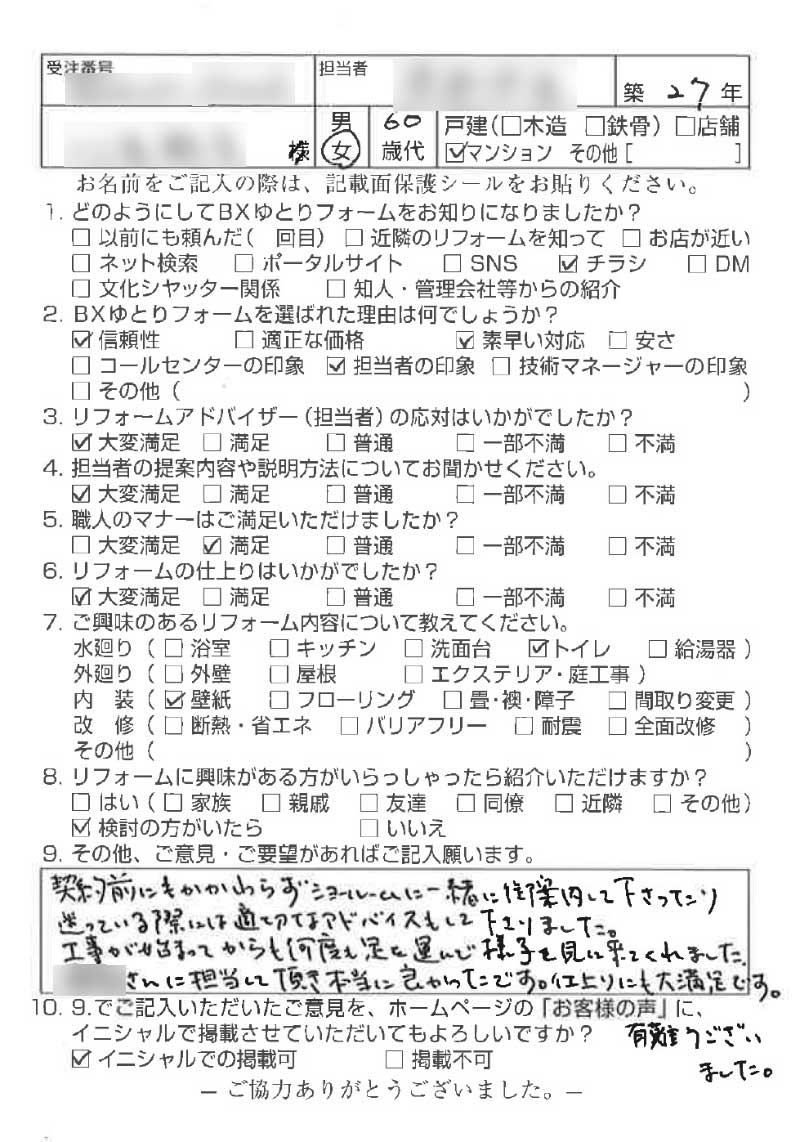 受注番号 担当者 築 27 年
様 男 女 60 歳代 戸建(□木造 □鉄骨) □店舗
☑マンション その他[ ]
お名前をご記入の際は、記載面保護シールをお貼りください。
1. どのようにしてBXゆとりフォームをお知りになりましたか?
□ 以前にも頼んだ( 回目) □ 近隣のリフォームを知って □ お店が近い
□ ネット検索 □ ポータルサイト □ SNS ☑ チラシ □ DM
□ 文化シヤッター関係 □ 知人・管理会社等からの紹介
2. BXゆとりフォームを選ばれた理由は何でしょうか?
☑ 信頼性 □ 適正な価格 ☑ 素早い対応 □ 安さ
□ コールセンターの印象 ☑ 担当者の印象 □ 技術マネージャーの印象
□ その他( )
3. リフォームアドバイザー(担当者)の応対はいかがでしたか?
☑ 大変満足 □ 満足 □ 普通 □ 一部不満 □ 不満
4. 担当者の提案内容や説明方法についてお聞かせください。
☑ 大変満足 □ 満足 □ 普通 □ 一部不満 □ 不満
5. 職人のマナーはご満足いただけましたか?
□ 大変満足 ☑ 満足 □ 普通 □ 一部不満 □ 不満
6. リフォームの仕上りはいかがでしたか?
☑ 大変満足 □ 満足 □ 普通 □ 一部不満 □ 不満
7. ご興味のあるリフォーム内容について教えてください。
水廻り( □ 浴室 □ キッチン □ 洗面台 ☑ トイレ □ 給湯器 )
外廻り( □ 外壁 □ 屋根 □ エクステリア・庭工事 )
内 装( ☑ 壁紙 □ フローリング □ 畳・襖・障子 □ 間取り変更 )
改 修( □ 断熱・省エネ □ バリアフリー □ 耐震 □ 全面改修 )
その他( )
8. リフォームに興味がある方がいらっしゃったら紹介いただけますか?
□ はい( □ 家族 □ 親戚 □ 友達 □ 同僚 □ 近隣 □ その他)
☑ 検討の方がいたら □ いいえ
9. その他、ご意見・ご要望があればご記入願います。
契約前にもかかわらずショールームに一緒に住案内して下さったり
迷っている際には適切なアドバイスもして下さりました。
工事が始まってからも何度も足を運んで様子を見に来てくれました。
さんに担当して頂き本当に良かったです。仕上りにも大満足です。
10. 9.でご記入いただいたご意見を、ホームページの「お客様の声」に、
イニシャルで掲載させていただいてもよろしいですか?
☑ イニシャルでの掲載可 □ 掲載不可
有難うござい
ました。
– ご協力ありがとうございました。–